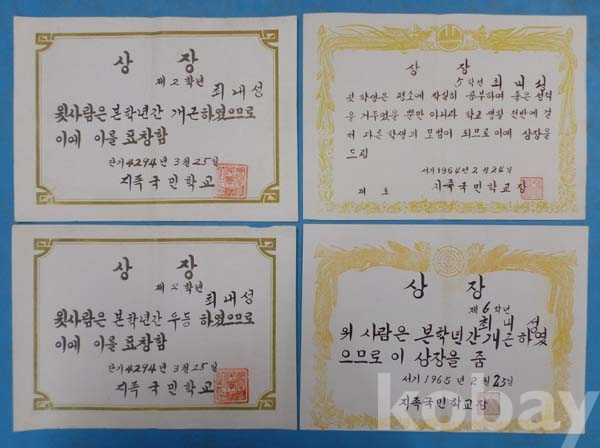 상 장
제 2 학년
최내성
윗사람은 본학년간 개근하였으므로
이에 이를 표창함
단기 4294 년 3 월 25 일
지족국민학교
상 장
5 학년 최내성
윗 학생은 평소에 착실히 공부하여 좋은 성적
을 거두었을 뿐만 아니라 학교 생활 전반에 걸
쳐 다른 학생의 모범이 되므로 이에 상장을
드림
서기 1964 년 2 월 24 일
제 호 지족국민학교장
상 장
제 2 학년
최내성
윗사람은 본학년간 우등 하였으므로
이에 이를 표창함
단기 4294 년 3 월 25 일
지족국민학교
상 장
제 6 학년
최내성
위 사람은 본학년간 개근하였
으므로 이 상장을 줌
서기 1965 년 2 월 23 일
지족국민학교장
kobay